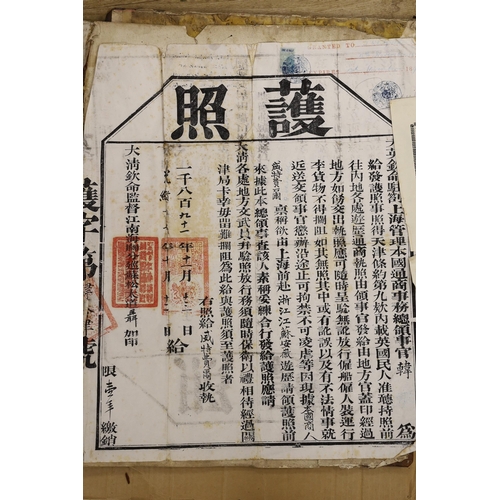 護照
大英欽命駐劄上海管理本國通商事務總領事官韓 為
給發護照事照得天津條約第九欵內載英國民人准聽持照前
往內地各處遊歷通商執照由領事官發給由地方官蓋印經過
地方如飭交出執照應可隨時呈驗無訛放行僱船僱人裝運行
李貨物不得攔阻如其無照其中或有訛誤以及有不法情事就
近送交領事官懲辦沿途止可拘禁不可凌虐等因現據本國商人
威特 稟稱欲由上海前赴浙江江蘇安徽遊歷請領護照前
來據此本總領事查該人素稱妥練合行發給護照應請
大清各處地方文武員弁驗照放行務須隨時保衛以禮相待經過關
津局卡幸毋留難攔阻為此給與護照須至護照者
右照給 收執
一千八百九十二年十一月十三日 給
光緒十 年十月 日
大清欽命監督江南海關分巡蘇松太道聶 加印
限壹年繳銷
護字第 號